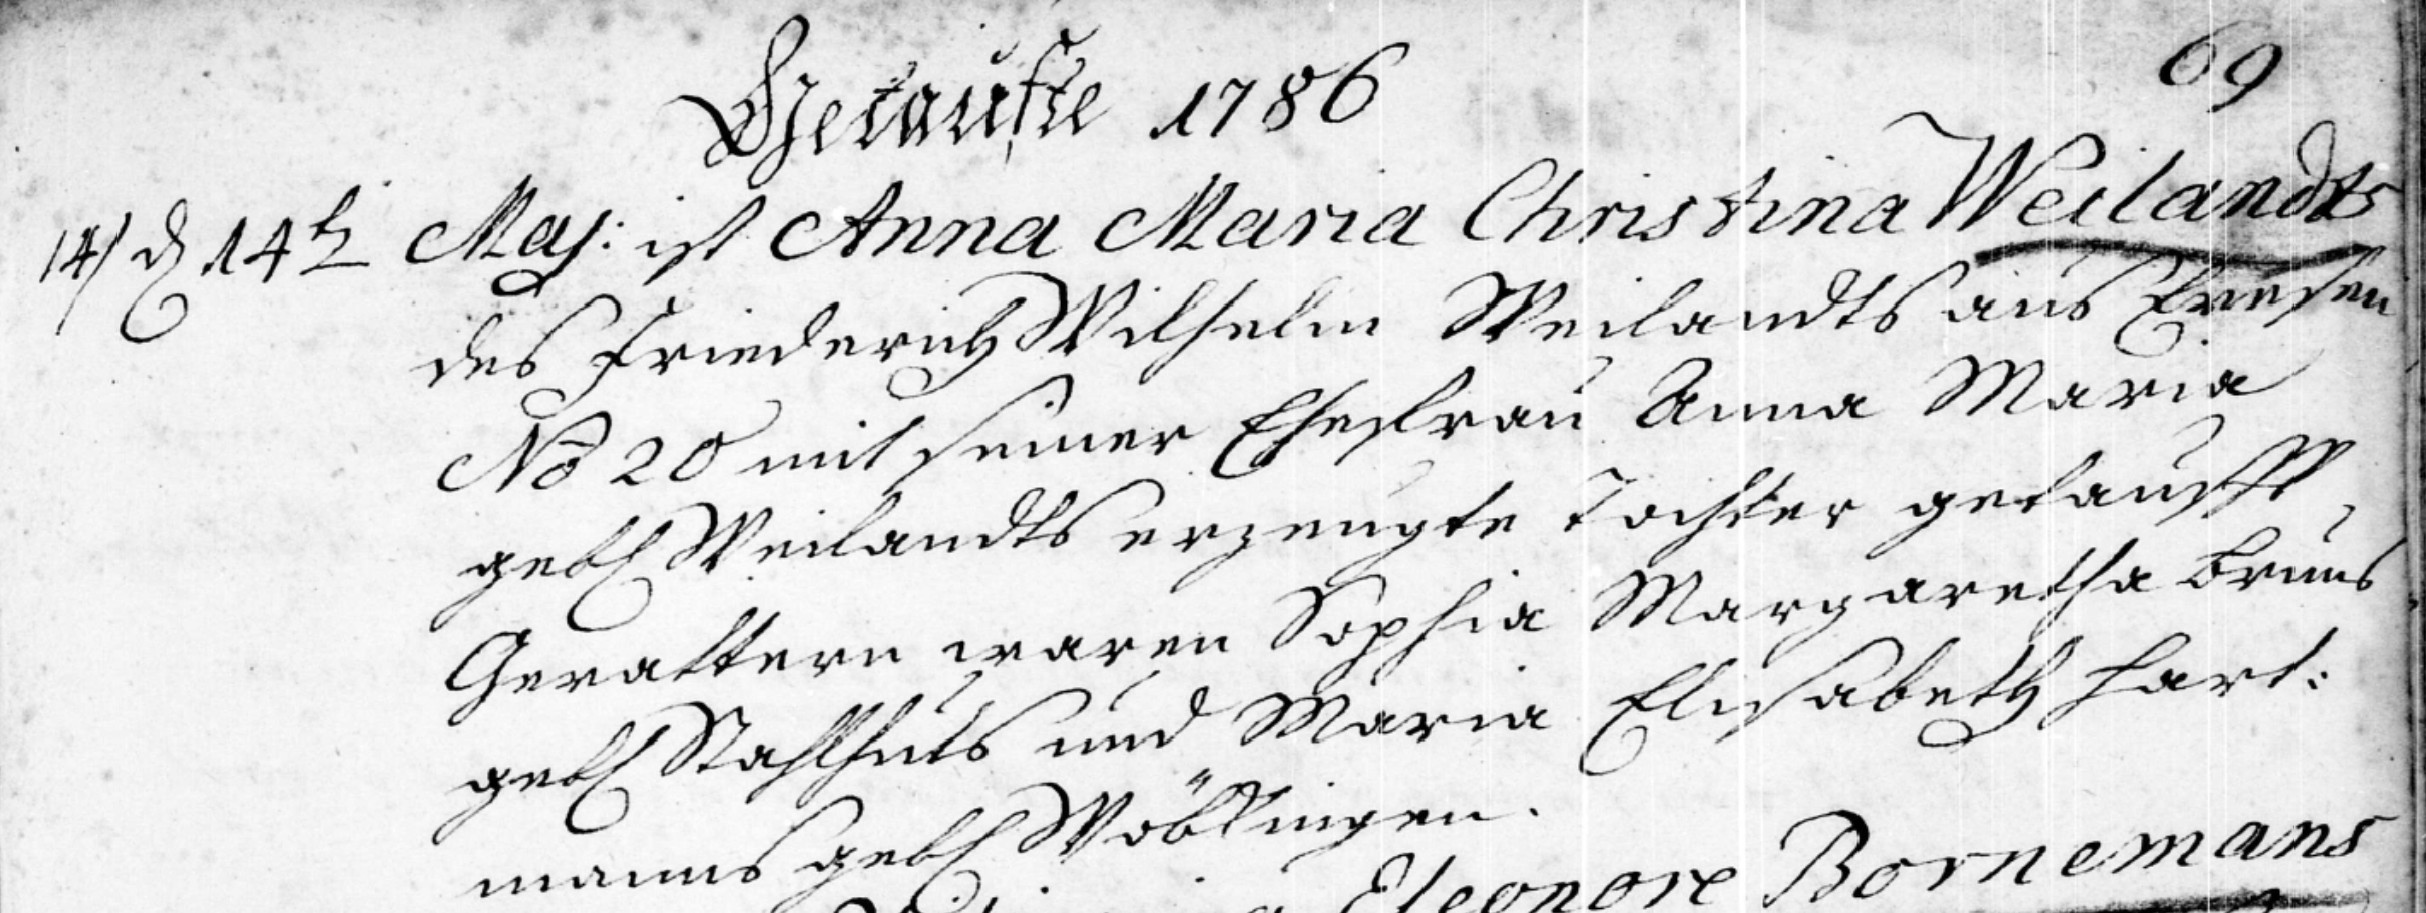 69
Getaufte 1786
14) d 14t Maj: ist Anna Maria Christina Weilandts
des Friederich Wilhelm Weilandts aus
No 20 mit seiner Ehefrau Anna Maria
geb Weilandts erzeugte Tochter getaufft,
Gevattern waren Sophia Margaretha Bruns
geb Stahlhuts und Maria Elisabeth Hart:
manns geb
Eleonore Bornemans